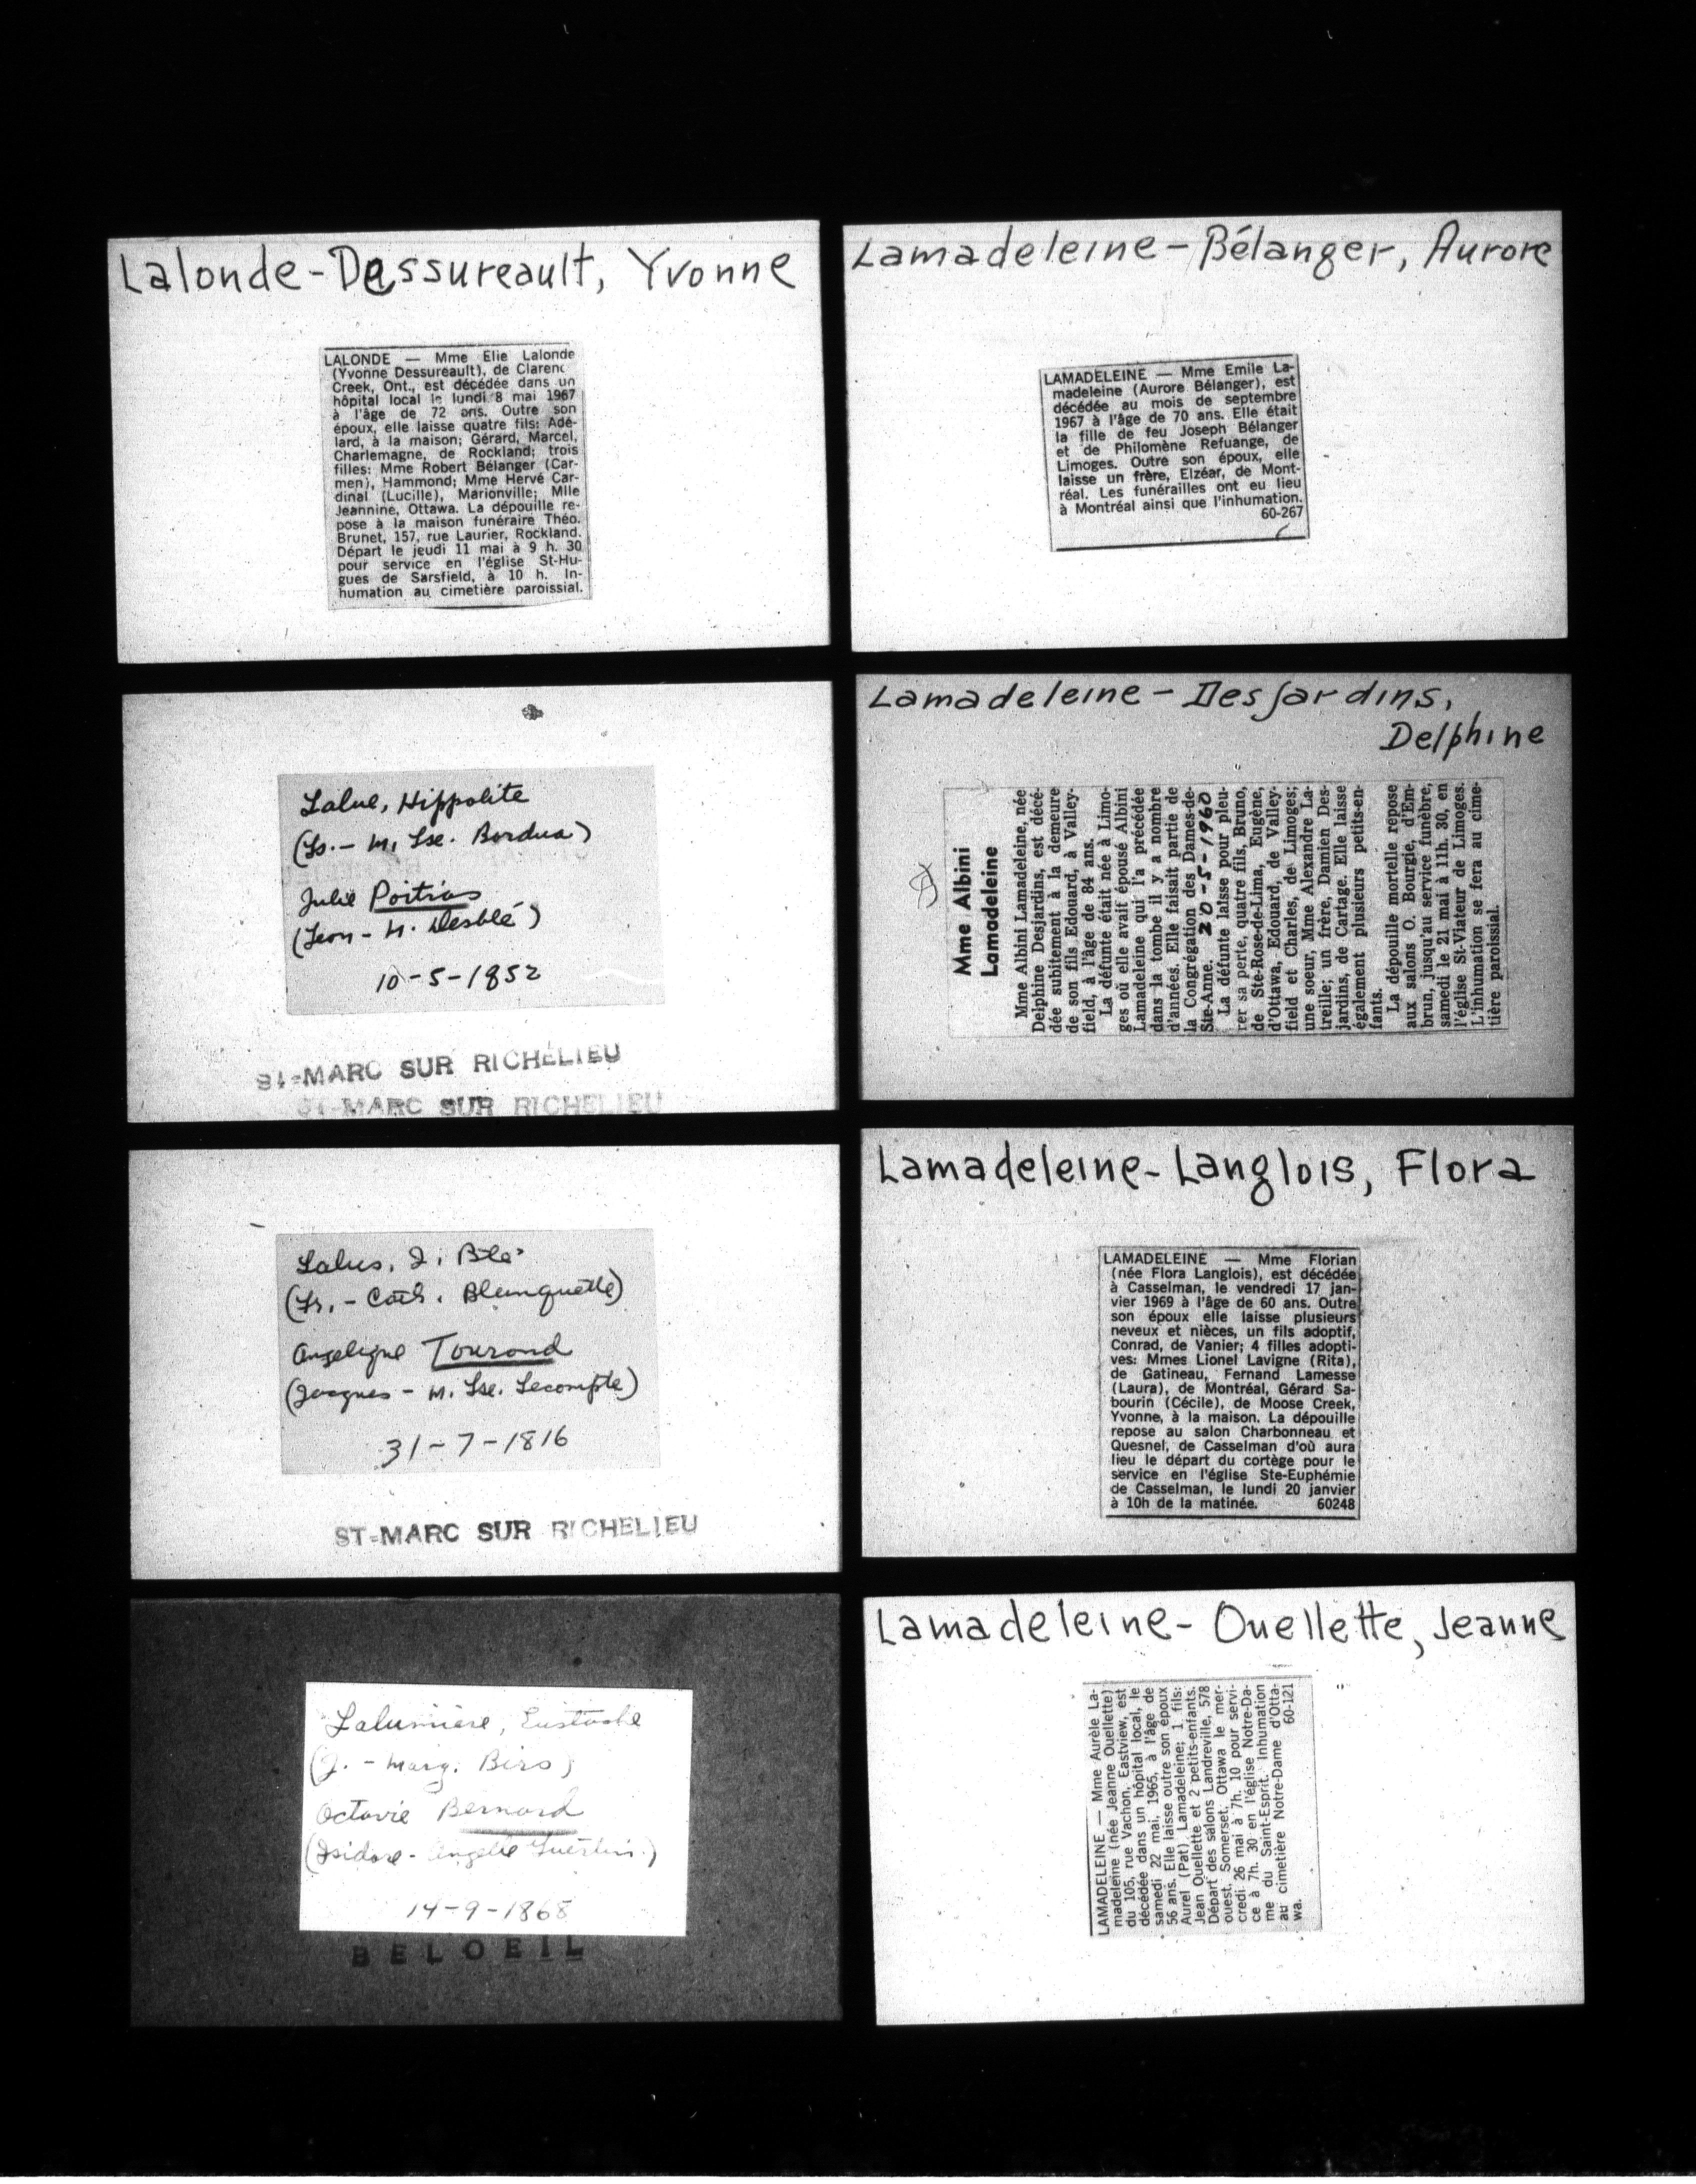 Lalonde-Dessureault, Yvonne
LALONDE — Mme Elie Lalonde
(Yvonne Dessureault), de Clarenc
Creek, Ont., est décédée dans un
hôpital local le lundi 8 mai 1967
à l'âge de 72 ans. Outre son
époux, elle laisse quatre fils: Adé-
lard, à la maison; Gérard, Marcel,
Charlemagne, de Rockland; trois
filles: Mme Robert Bélanger (Car-
men), Hammond; Mme Hervé Car-
dinal (Lucille), Marionville; Mlle
Jeannine, Ottawa. La dépouille re-
pose à la maison funéraire Théo.
Brunet, 157, rue Laurier, Rockland.
Départ le jeudi 11 mai à 9 h. 30
pour service en l'église St-Hu-
gues de Sarsfield, à 10 h. In-
humation au cimetière paroissial.
Lalue, Hippolite
(Ls. - M. Lse. Bordua)
Julie Poitras
(Leon - M. Desblé)
10-5-1852
ST-MARC SUR RICHELIEU
ST-MARC SUR RICHELIEU
Lalus, J. Bte
(Fr. - Cath. Blanquette)
Angelique Tourond
(Jacques - M. Lse. Lecompte)
31-7-1816
ST-MARC SUR RICHELIEU
Lalumière, Eustache
(J. - Marg. Biro)
Octavie Bernard
(Isidore - Angele Guertin)
14-9-1868
BELOEIL
Lamadeleine-Bélanger, Aurore
LAMADELEINE — Mme Emile La-
madeleine (Aurore Bélanger), est
décédée au mois de septembre
1967 à l'âge de 70 ans. Elle était
la fille de feu Joseph Bélanger
et de Philomène Refuange, de
Limoges. Outre son époux, elle
laisse un frère, Elzéar, de Mont-
réal. Les funérailles ont eu lieu
à Montréal ainsi que l'inhumation.
60-267
Lamadeleine-Desjardins,
Delphine
Mme Albini
Lamadeleine
Mme Albini Lamadeleine, née
Delphine Desjardins, est décé-
dée subitement à la demeure
de son fils Edouard, à Valley-
field, à l'âge de 84 ans.
La défunte était née à Limo-
ges où elle avait épousé Albini
Lamadeleine qui l'a précédée
dans la tombe il y a nombre
d'années. Elle faisait partie de
la Congrégation des Dames-de-
Ste-Anne. 20-5-1960
La défunte laisse pour pleu-
rer sa perte, quatre fils, Bruno,
de Ste-Rose-de-Lima, Eugène,
d'Ottawa, Edouard, de Valley-
field et Charles, de Limoges;
une soeur, Mme Alexandre La-
treille; un frère, Damien Des-
jardins, de Cartage. Elle laisse
également plusieurs petits-en-
fants.
La dépouille mortelle repose
aux salons O. Bourgie, d'Em-
brun, jusqu'au service funèbre,
samedi le 21 mai à 11h. 30, en
l'église St-Viateur de Limoges.
L'inhumation se fera au cime-
tière paroissial.
Lamadeleine-Langlois, Flora
LAMADELEINE — Mme Florian
(née Flora Langlois), est décédée
à Casselman, le vendredi 17 jan-
vier 1969 à l'âge de 60 ans. Outre
son époux elle laisse plusieurs
neveux et nièces, un fils adoptif,
Conrad, de Vanier; 4 filles adopti-
ves: Mmes Lionel Lavigne (Rita),
de Gatineau, Fernand Lamesse
(Laura), de Montréal, Gérard Sa-
bourin (Cécile), de Moose Creek,
Yvonne, à la maison. La dépouille
repose au salon Charbonneau et
Quesnel, de Casselman d'où aura
lieu le départ du cortège pour le
service en l'église Ste-Euphémie
de Casselman, le lundi 20 janvier
à 10h de la matinée. 60248
Lamadeleine-Ouellette, Jeanne
LAMADELEINE — Mme Aurèle La-
madeleine (née Jeanne Ouellette)
du 105, rue Vachon, Eastview, est
décédée dans un hôpital local, le
samedi 22 mai, 1965, à l'âge de
56 ans. Elle laisse outre son époux
Aurel (Pat) Lamadeleine; 1 fils:
Jean Ouellette et 2 petits-enfants.
Départ des salons Landreville, 578
ouest, Somerset, Ottawa le mer-
credi 26 mai à 7h. 10 pour servi-
ce à 7h. 30 en l'église Notre-Da-
me du Saint-Esprit. Inhumation
au cimetière Notre-Dame d'Otta-
wa. 60-121